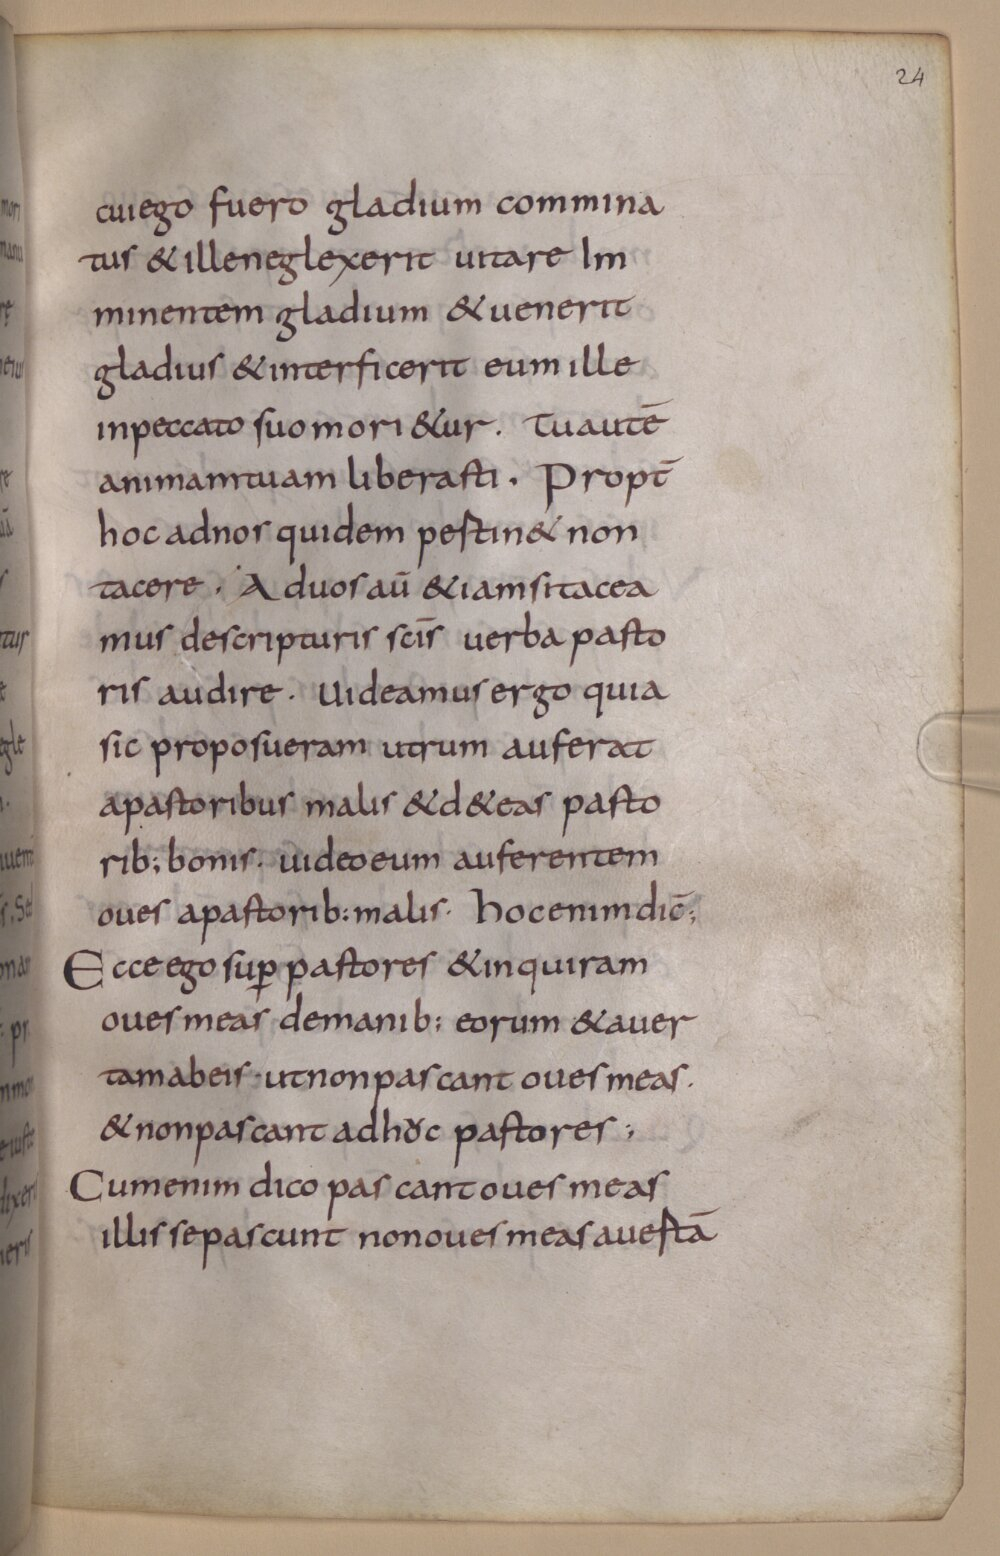 24
cui ego fuero gladium commina
tus & ille neglexerit uitare Im
minentem gladium & uenerit
gladius & interficerit eum ille
in peccato suo mori&ur. Tu autē
animam tuam liberasti. Propt̄
hoc ad nos quidem pestin& non
tacere. A duos aū & iam si tacea
mus de scripturis scīs uerba pasto
ris audire. Uideamus ergo quia
sic proposueram utrum auferat
a pastoribus malis & d& eas pasto
rib; bonis. uideo eum auferentem
oues a pastorib: malis. hoc enim dic̄;
Ecce ego suꝑ pastores & inquiram
oues meas de manib; eorum & auer
tam ab eis. ut non pascant oues meas.
& non pascant adhuc pastores;
Cum enim dico pascant oues meas
illi se pascunt non oues meas auestā